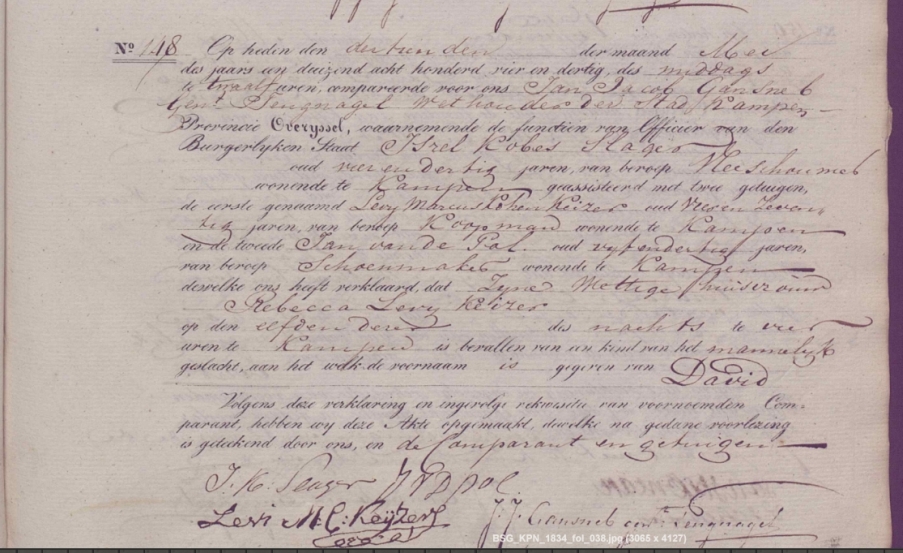 No 148 Op heden den dertienden der maand Mei
des jaars een duizend acht honderd vier en dertig, des middags
te twaalf uren, compareerde voor ons Jan Jacob Gansneb
Gent Tengnagel Wethouder der Stad Kampen
Provincie Overyssel, waarnemende de functien van Officier van den
Burgerlyken Staat Iszel Kobes Slager
oud vier en dertig jaren, van beroep Vleischouwer
wonende te Kampen geassisteerd met twee getuigen,
de eerste genaamd Levy Marcus Keizer oud zeven
tig jaren, van beroep Koopman wonende te Kampen
en de tweede Jan van de Pol oud vyf en dertig jaren,
van beroep Schoenmaker wonende te Kampen
dewelke ons heeft verklaard, dat Zyne Wettige huisvrouw
Rebecca Levy Keizer
op den elfden dezer des nachts te vier
uren te Kampen is bevallen van een kind van het mannelyk
geslacht, aan het welk de voornaam is gegeven van David
Volgens deze verklaring en ingevolge rekwisitie van voornoemden Com-
parant, hebben wy deze Akte opgemaakt, dewelke na gedane voorlezing
is geteekend door ons, en de Comparant en getuigen
I. K. Slager J V D Pol
Levi M. C: Keÿzer
J. J. Gansneb Tengnagel
BSG_KPN_1834_fol_038.jpg (3065 x 4127)